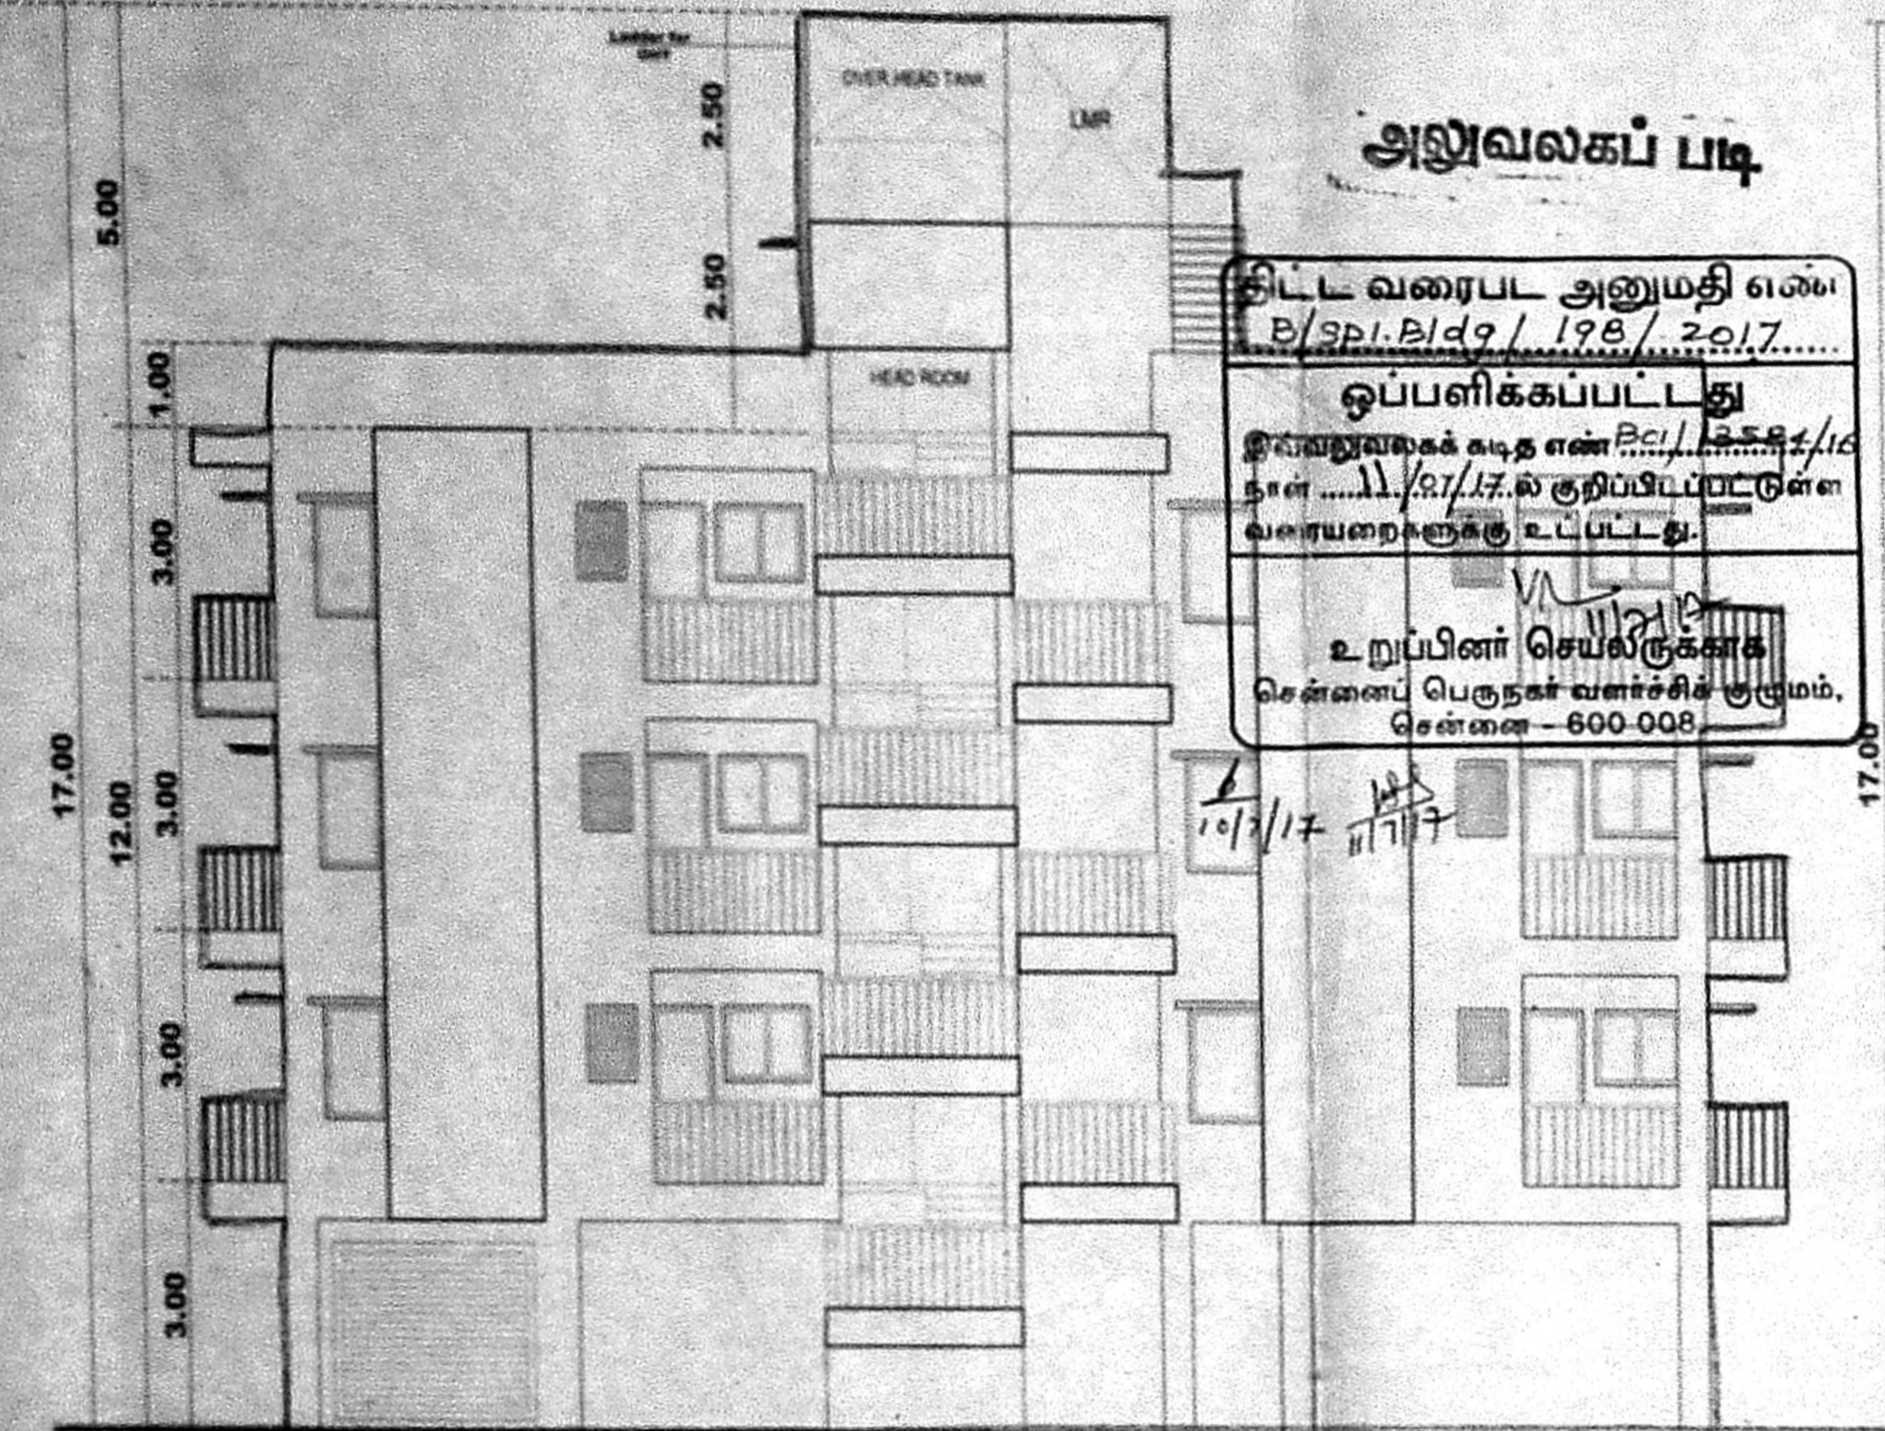 Ladder for
OHT
OVER HEAD TANK
LMR
2.50
5.00
2.50
1.00
HEAD ROOM
3.00
3.00
3.00
3.00
12.00
17.00
17.00
அலுவலகப் படி
திட்ட வரைபட அனுமதி எண்
B/Spl.Bldg/ 198/ 2017
ஒப்பளிக்கப்பட்டது
இவ்வலுவலகக் கடித எண்
நாள் 11/07/17 ல் குறிப்பிடப்பட்டுள்ள
வரையறைகளுக்கு உட்பட்டது.
11/7/17
உறுப்பினர் செயலருக்காக
சென்னைப் பெருநகர் வளர்ச்சிக் குழுமம்,
சென்னை - 600 008
10/7/17
11/7/17